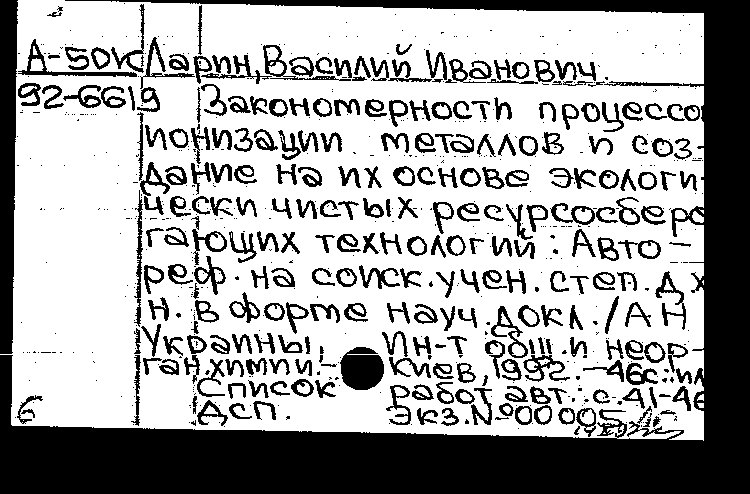 А-50К Ларин, Василий Иванович.
92-6619 Закономерности процессо
ионизации металлов и соз-
дание на их основе экологи-
чески чистых ресурсосбере
гающих технологий: Авто-
реф. на соиск. учен. степ. д. х
н. в форме науч. докл. / АН
Украины, Ин-т общ. и неор-
ган. химии. - Киев, 1992. - 46с.: ил
Список работ авт.: с. 41-46
6 ДСП. Экз. № 00005